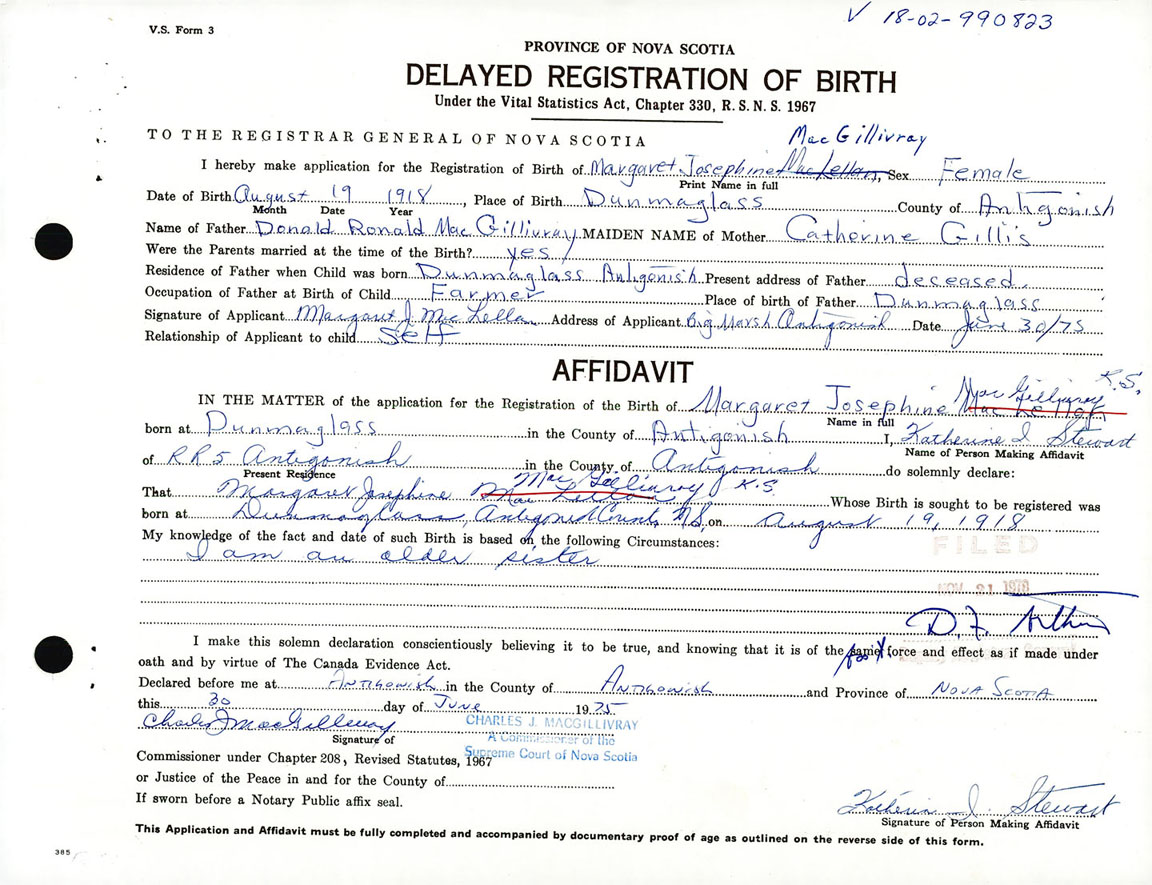 V 18-02-990823
V.S. Form 3
PROVINCE OF NOVA SCOTIA
DELAYED REGISTRATION OF BIRTH
Under the Vital Statistics Act, Chapter 330, R.S.N.S. 1967
TO THE REGISTRAR GENERAL OF NOVA SCOTIA
Mac Gillivray
I hereby make application for the Registration of Birth of Margaret Josephine MacLellan, Sex Female
Print Name in full
Date of Birth August 19 1918, Place of Birth Dunmaglass County of Antigonish
Month Date Year
Name of Father Donald Ronald Mac Gillivray MAIDEN NAME of Mother Catherine Gillis
Were the Parents married at the time of the Birth? yes
Residence of Father when Child was born Dunmaglass Antigonish Present address of Father deceased.
Occupation of Father at Birth of Child Farmer Place of birth of Father Dunmaglass
Signature of Applicant Margaret J. MacLellan Address of Applicant Big Marsh Antigonish Date June 30/75
Relationship of Applicant to child Self
AFFIDAVIT
Mac Gillivray K.S.
IN THE MATTER of the application for the Registration of the Birth of Margaret Josephine
Name in full
born at Dunmaglass in the County of Antigonish I, Katherine I Stewart
Name of Person Making Affidavit
of RR5 Antigonish in the County of Antigonish do solemnly declare:
Present Residence
Mac Gillivray K.S.
That Margaret Josephine Mac Lellan Whose Birth is sought to be registered was
born at Dunmaglass, Antigonish County, N.S, on August 19, 1918
My knowledge of the fact and date of such Birth is based on the following Circumstances:
I am an older sister
FILED
NOV 21 1978
D.F. Arthur
I make this solemn declaration conscientiously believing it to be true, and knowing that it is of the same force and effect as if made under
oath and by virtue of The Canada Evidence Act.
Declared before me at Antigonish in the County of Antigonish and Province of Nova Scotia
this 30 day of June 1975
Charles J MacGillivray
CHARLES J. MACGILLIVRAY
A Commissioner of the
Supreme Court of Nova Scotia
Signature of
Commissioner under Chapter 208, Revised Statutes, 1967
or Justice of the Peace in and for the County of
If sworn before a Notary Public affix seal.
Katherine I. Stewart
Signature of Person Making Affidavit
This Application and Affidavit must be fully completed and accompanied by documentary proof of age as outlined on the reverse side of this form.
385